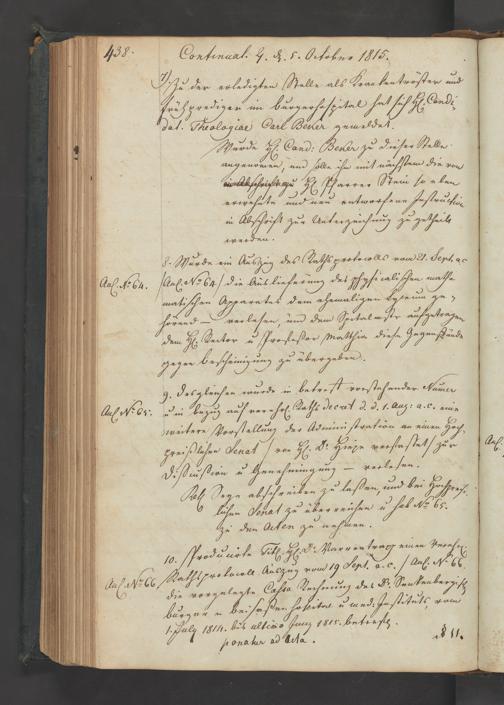 438.
Continuat. Z. d. 5. October 1815.
7) Zu der erledigten Stelle als Krankentröster und
Frühprediger im Bürgerhospital hat sich H. Candi-
dat. Theologiae Carl Becker gemeldet.
Wurde H. Cand: Becker zu dieser Stelle
angenommen, und solle ihm mit nächstem die von
H. Pfarrer Stein so eben
revidirte und neu entworfene Instruction
in Abschrift zur Unterzeichnung zugestellt
werden.
8. Wurde ein Auszug des Rathsprotocolls vom 21. Sept. a.c.
Anl. No. 64.
/Anl. No. 64/ die Auslieferung des physicalischen mathe-
matischen Apparates dem ehemaligen Lyceum ge-
hörend — verlesen, und dem Spitalmeister aufgetragen
dem H. Rector u. Professor Matthiae diese Gegenstände
gegen Bescheinigung zu übergeben.
9. Desgleichen wurde in betreff vorstehender Numer
Anl. No. 65.
u. in bezug auf verehrl. Raths decret d. d. 1. Aug: a.c. eine
weitere Vorstellung der Administration an einen Hoch-
preißlichen Senat / von H. D: verfasset / zur
Discussion u. Genehmigung — verlesen.
abschreiben zu lassen, und bei Hochpreis-
lichen Senat zu überreichen u. sub No. 65.
zu den Acten zu nehmen.
10. /Producirte Titl. H. D: Varrentrapp einen verehrl.
Rathsprotocolls Auszug vom 19 Sept. a.c. / Anl. No. 66.
Anl. No. 66
die vorgelegte Cassa Rechnung des D: Senkenbergisch.
Bürger u. beisassen hospital u. med: Instituts vom
1. July 1814. bis ultimo Juny 1815. betreff.
ponatur ad acta.
§ 11.